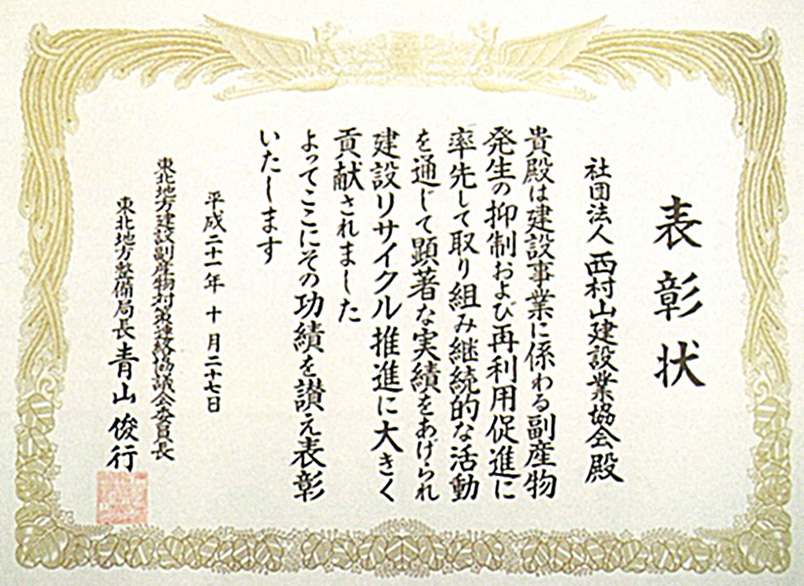 表彰状
社団法人 西村山建設業協会 殿
貴殿は建設事業に係わる副産物
発生の抑制および再利用促進に
率先して取り組み継続的な活動
を通じて顕著な実績をあげられ
建設リサイクル推進に大きく
貢献されました
よってここにその功績を讃え表彰
いたします
平成二十一年 十月二十七日
東北地方建設副産物対策連絡協議会委員長
東北地方整備局長 青山 俊行